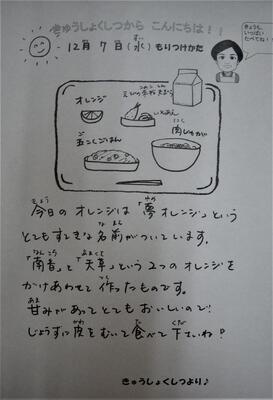 きゅうしょくしつから こんにちは!!
12月 7日(水) もりつけかた
きょうも、
いっぱい
たべてね!
オレンジ
いそあえ
肉じゃが
五こくごはん
今日の オレンジは「夢オレンジ」という
とてもすてきな名前がついています。
「南香」と「天草」という2つのオレンジを
かけあわせて 作ったものです。
甘みがあって とてもおいしいので!
じょうずに皮をむいて食べて下さいね!
きゅうしょくしつより♪